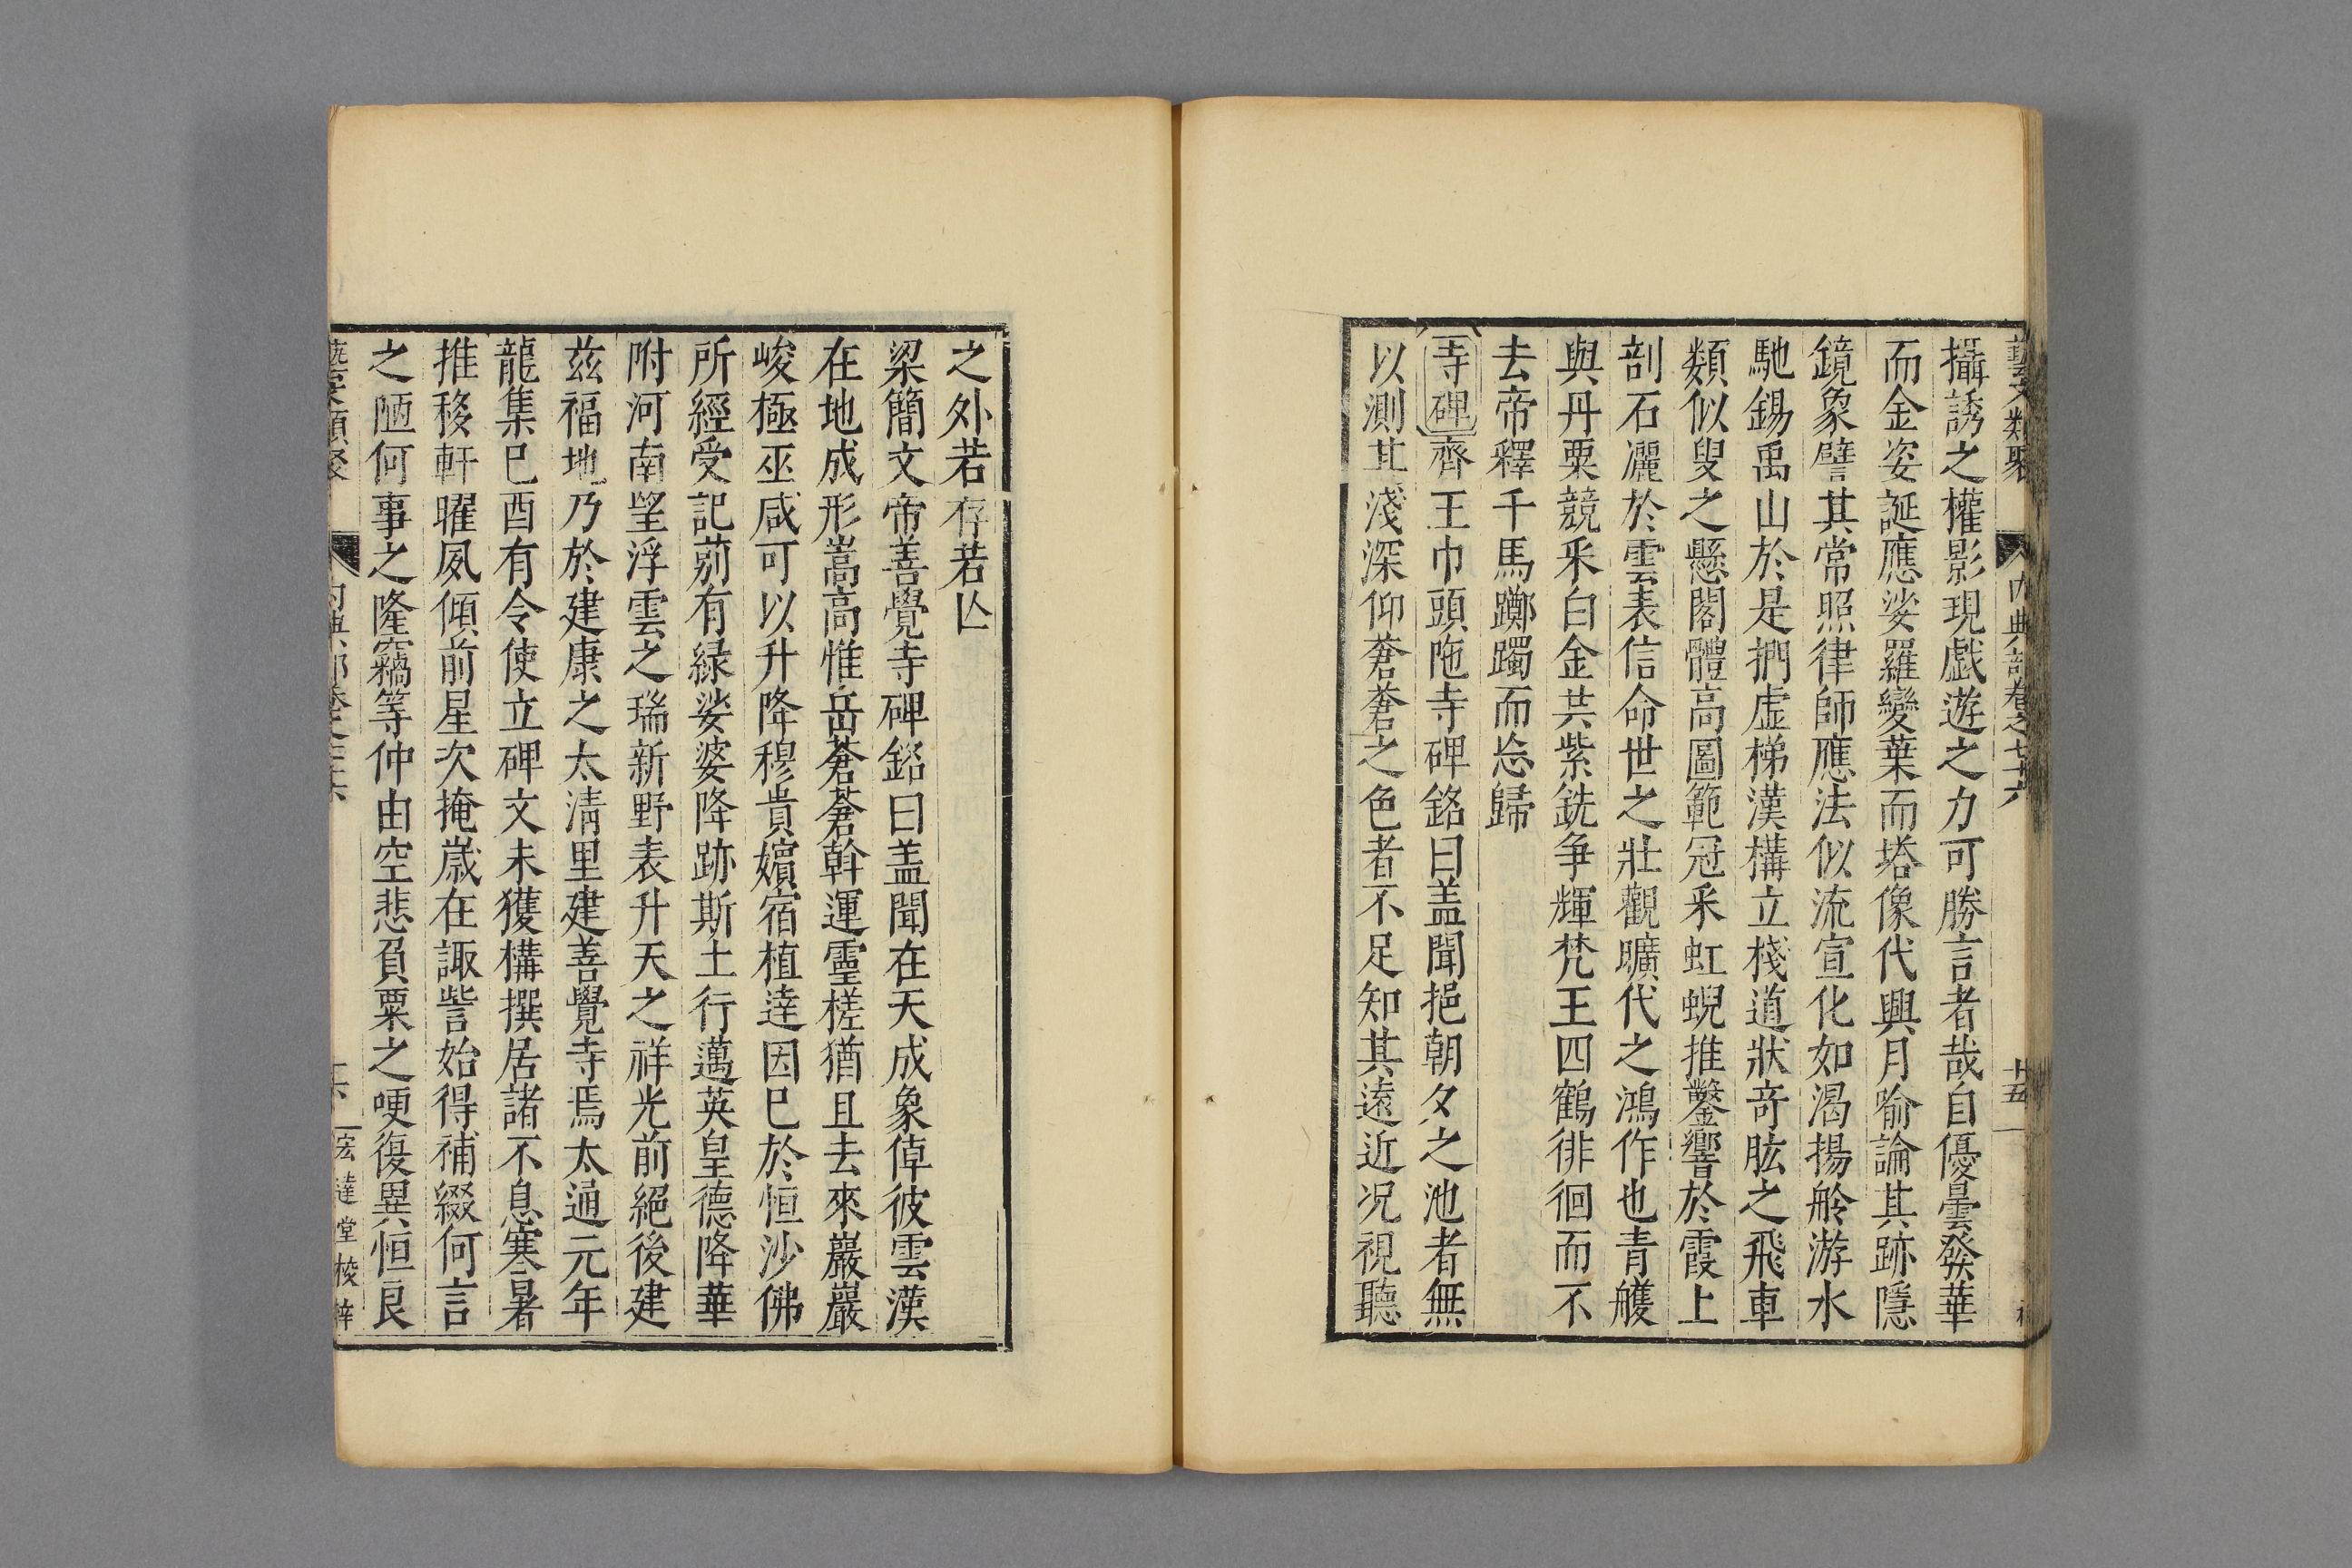 藝文類聚 內典部卷之七十六 十五
攝誘之權影現戲遊之力可勝言者哉自優曇發華
而金姿誕應娑羅變葉而塔像代興月喻論其跡隱
鏡象譬其常照律師應法似流宣化如渴揚舲游水
馳錫禹山於是捫虛梯漢構立棧道狀奇肱之飛車
類似叟之懸閣體高圖範冠釆虹蜺推鑿響於霞上
剖石灑於雲表信命世之壯觀曠代之鴻作也青雘
與丹粟競釆白金共紫銑争輝梵王四鶴徘徊而不
去帝釋千馬躑躅而忘歸
寺碑齊王巾頭陁寺碑銘曰盖聞挹朝夕之池者無
以測其淺深仰蒼蒼之色者不足知其遠近况視聽
之外若存若亾
梁簡文帝善覺寺碑銘曰盖聞在天成象倬彼雲漢
在地成形嵩高惟岳蒼蒼斡運靈槎猶且去來巖巖
峻極巫咸可以升降穆貴嬪宿植達因巳於恒沙佛
所經受記莂有緑娑婆降跡斯土行邁英皇德降華
附河南望浮雲之瑞新野表升天之祥光前絕後建
兹福地乃於建康之太清里建善覺寺焉太通元年
龍集巳酉有令使立碑文未獲構撰居諸不息寒暑
推移軒曜夙傾前星次掩歲在諏訾始得補綴何言
之陋何事之隆竊等仲由空悲負粟之哽復異恒良
藝文類聚 內典部卷之七十六 十六 宏達堂校梓